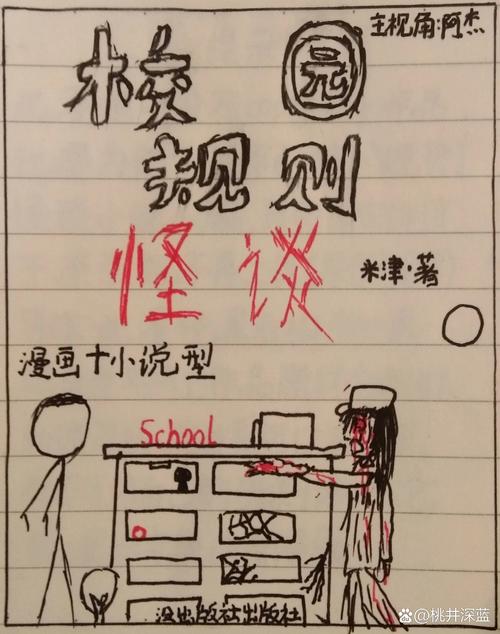 主视角:阿杰
校园
规则
怪谈
米津·著
漫画+小说型
School
没出版社出版社
@桃井深蓝